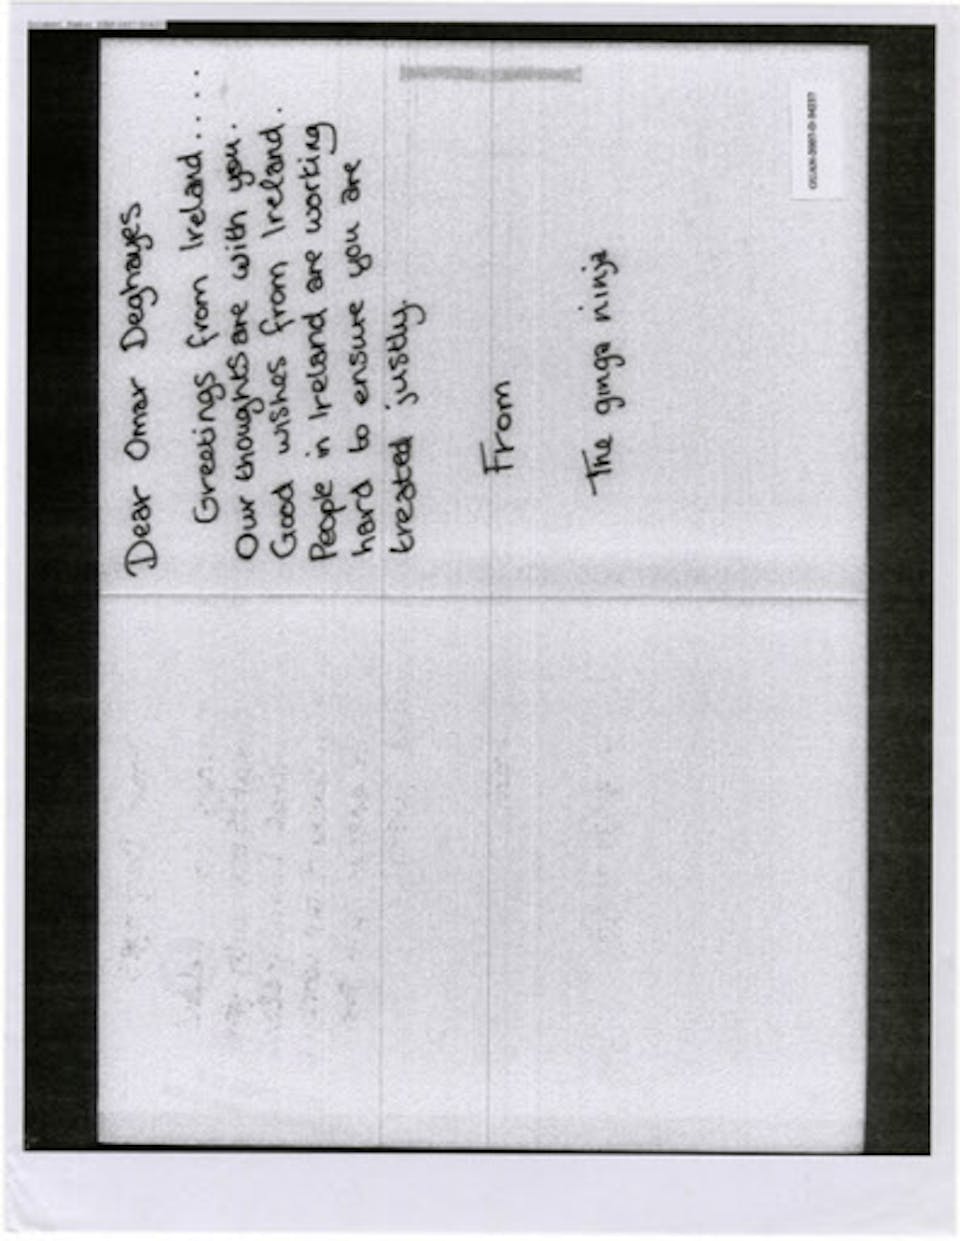 Dear Omar Deghayes
Greetings from Ireland....
Our thoughts are with you.
Good wishes from Ireland.
People in Ireland are working
hard to ensure you are
treated justly.
From
The ginga ninja